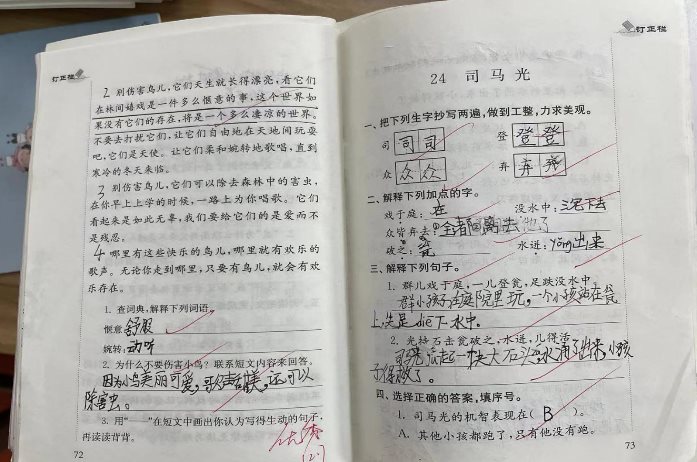 订正栏
2 别伤害鸟儿,它们天生就长得漂亮,看它们
在林间嬉戏是一件多么惬意的事,这个世界如
果没有它们的存在,将是一个多么凄凉的世界。
不要去打扰它们,让它们自由地在天地间玩耍
吧,它们是天使。让它们柔和婉转地歌唱,直到
寒冷的冬天来临。
3 别伤害鸟儿,它们可以除去森林中的害虫,
在你早上上学的时候,一路上为你唱歌。它们
看起来是如此无辜,我们要给它们的是爱而不
是残忍。
4 哪里有这些快乐的鸟儿,哪里就有欢乐的
歌声。无论你走到哪里,只要有鸟儿,就会有欢
乐存在。
1. 查词典,解释下列词语。
惬意:舒服
婉转:动听
2. 为什么不要伤害小鸟?联系短文内容来回答。
因为小鸟美丽可爱,歌声甜美,还可以
除害虫。
3. 用“——”在短文中画出你认为写得生动的句子,
再读读背背。
72
订正栏
24 司马光
一、把下列生字抄写两遍,做到工整,力求美观。
司 司 司 登 登 登
众 众 众 弃 弃 弃
二、解释下列加点的字。
戏于庭:在 没水中:沉下去
众皆弃去:全都 离去
破之:瓮 水迸:yǒng出来
三、解释下列句子。
1. 群儿戏于庭,一儿登瓮,足跌没水中。
群小孩子在庭院里玩,一个小孩站在瓮
上,先是 die下水中。
2. 光持石击瓮破之,水迸,儿得活。
一块大石头 水涌了出来,小孩
子得救了。
四、选择正确的答案,填序号。
1. 司马光的机智表现在( B )。
A. 其他小孩都跑了,只有他没有跑。
73